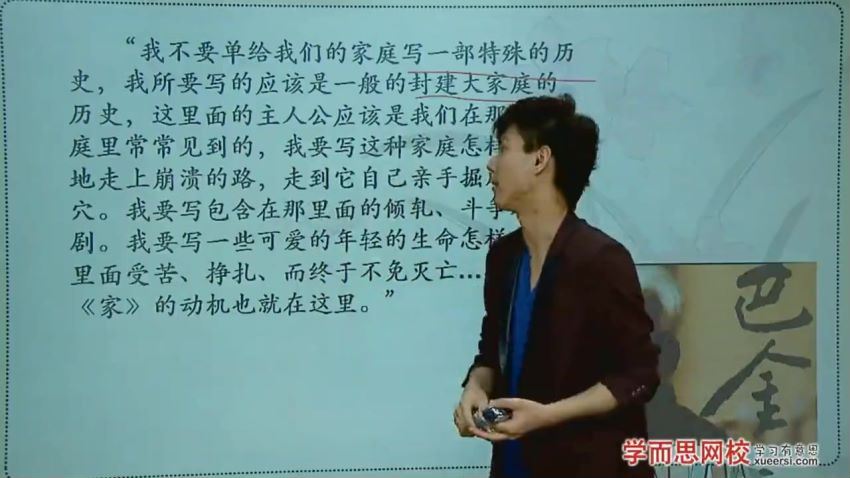 “我不要单给我们的家庭写一部特殊的历
史，我所要写的应该是一般的封建大家庭的
历史，这里面的主人公应该是我们在那
庭里常常见到的，我要写这种家庭怎样
地走上崩溃的路，走到它自己亲手掘
穴。我要写包含在那里面的倾轧、斗争
剧。我要写一些可爱的年轻的生命怎样
里面受苦、挣扎、而终于不免灭亡…
《家》的动机也就在这里。”
巴金
学而思网校
学习有意思
xueersi.com